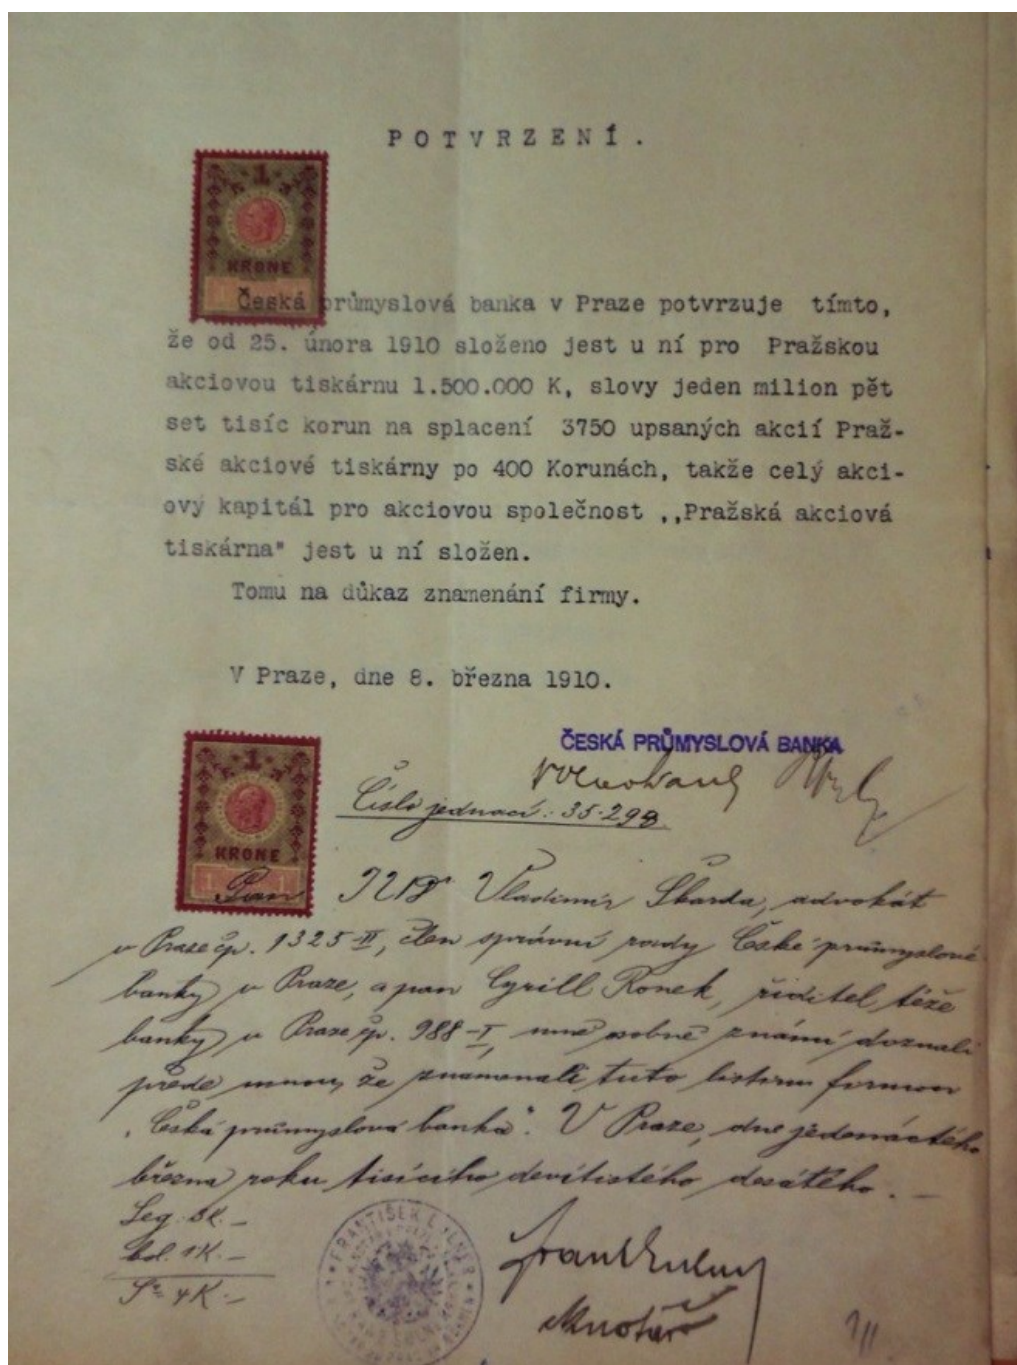 POTVRZENÍ.
1
KRONE
Česká průmyslová banka v Praze potvrzuje tímto,
že od 25. února 1910 složeno jest u ní pro Pražskou
akciovou tiskárnu 1.500.000 K, slovy jeden milion pět
set tisíc korun na splacení 3750 upsaných akcií Praž-
ské akciové tiskárny po 400 Korunách, takže celý akci-
ový kapitál pro akciovou společnost ,,Pražská akciová
tiskárna" jest u ní složen.
Tomu na důkaz znamenání firmy.
V Praze, dne 8. března 1910.
ČESKÁ PRŮMYSLOVÁ BANKA
Číslo jednací: 35.298
1
KRONE
1 1
Pan JUDr Vladimír Škarda, advokát
v Praze čp. 1325-II, člen správní rady České průmyslové
banky v Praze, a pan Cyrill Ronek, řiditel téže
banky v Praze čp. 988-I, mně osobně známí doznali
přede mnou, že znamenali tuto listinu firmou
„Česká průmyslová banka". V Praze, dne jedenáctého
března roku tisícího devítistého desátého.-
Leg.
Kol. 1K.-
4K.-
FRANTIŠEK
notář